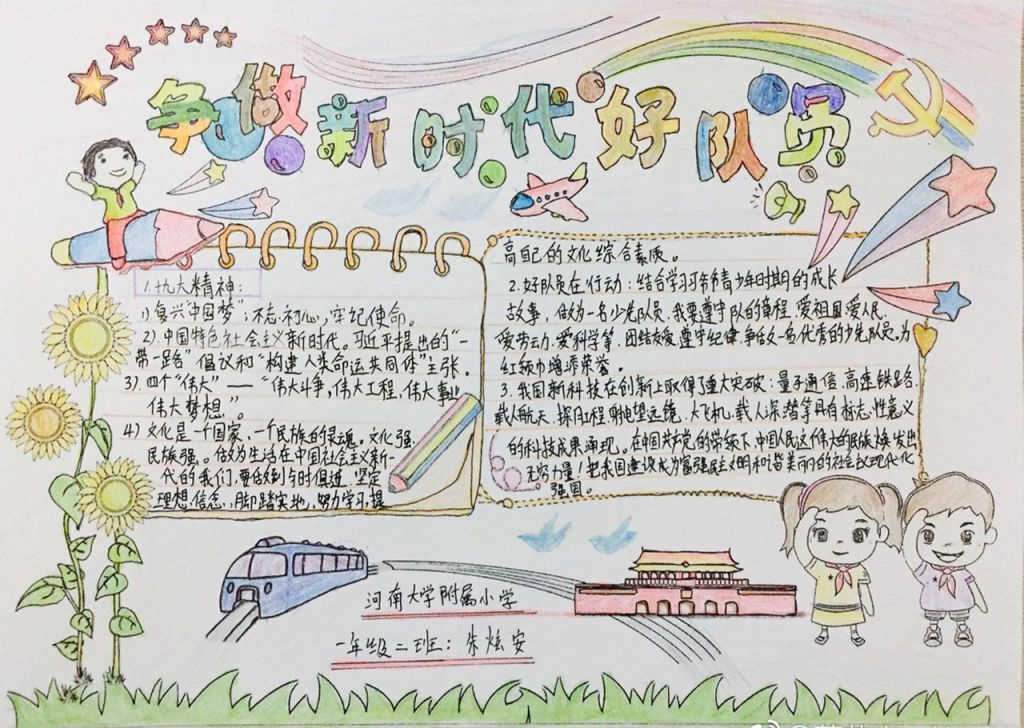 争做新时代好队员
1.十九大精神:
1)复兴“中国梦”;不忘初心,牢记使命。
2)中国特色社会主义新时代。习近平提出的“一
带一路”倡议和“构建人类命运共同体”主张。
3).四个“伟大”——“伟大斗争,伟大工程,伟大事业
伟大梦想”。
4)文化是一个国家、一个民族的灵魂。文化强,
民族强。做为生活在中国社会主义新一
代的我们,要做到与时俱进,坚定
理想信念,脚踏实地,努力学习,提
高自己的文化综合素质。
2.好队员在行动:结合学习爷爷青少年时期的成长
故事,做为一名少先队员.我要遵守队的章程.爱祖国.爱人民.
爱劳动.爱科学等.团结友爱.遵守纪律.争做一名优秀的少先队员.为
红领巾增添荣誉。
3.我国新科技在创新上取得了重大突破:量子通信.高速铁路.
载人航天.探月工程.射电望远镜.大飞机.载人深潜等具有标志性意义
的科技成果涌现。在中国共产党的带领下,中国人民这个伟大的民族焕发出
无穷力量!把我国建设成为富强民主文明和谐美丽的社会主义现代化
强国。
河南大学附属小学
一年级二班:朱炫安